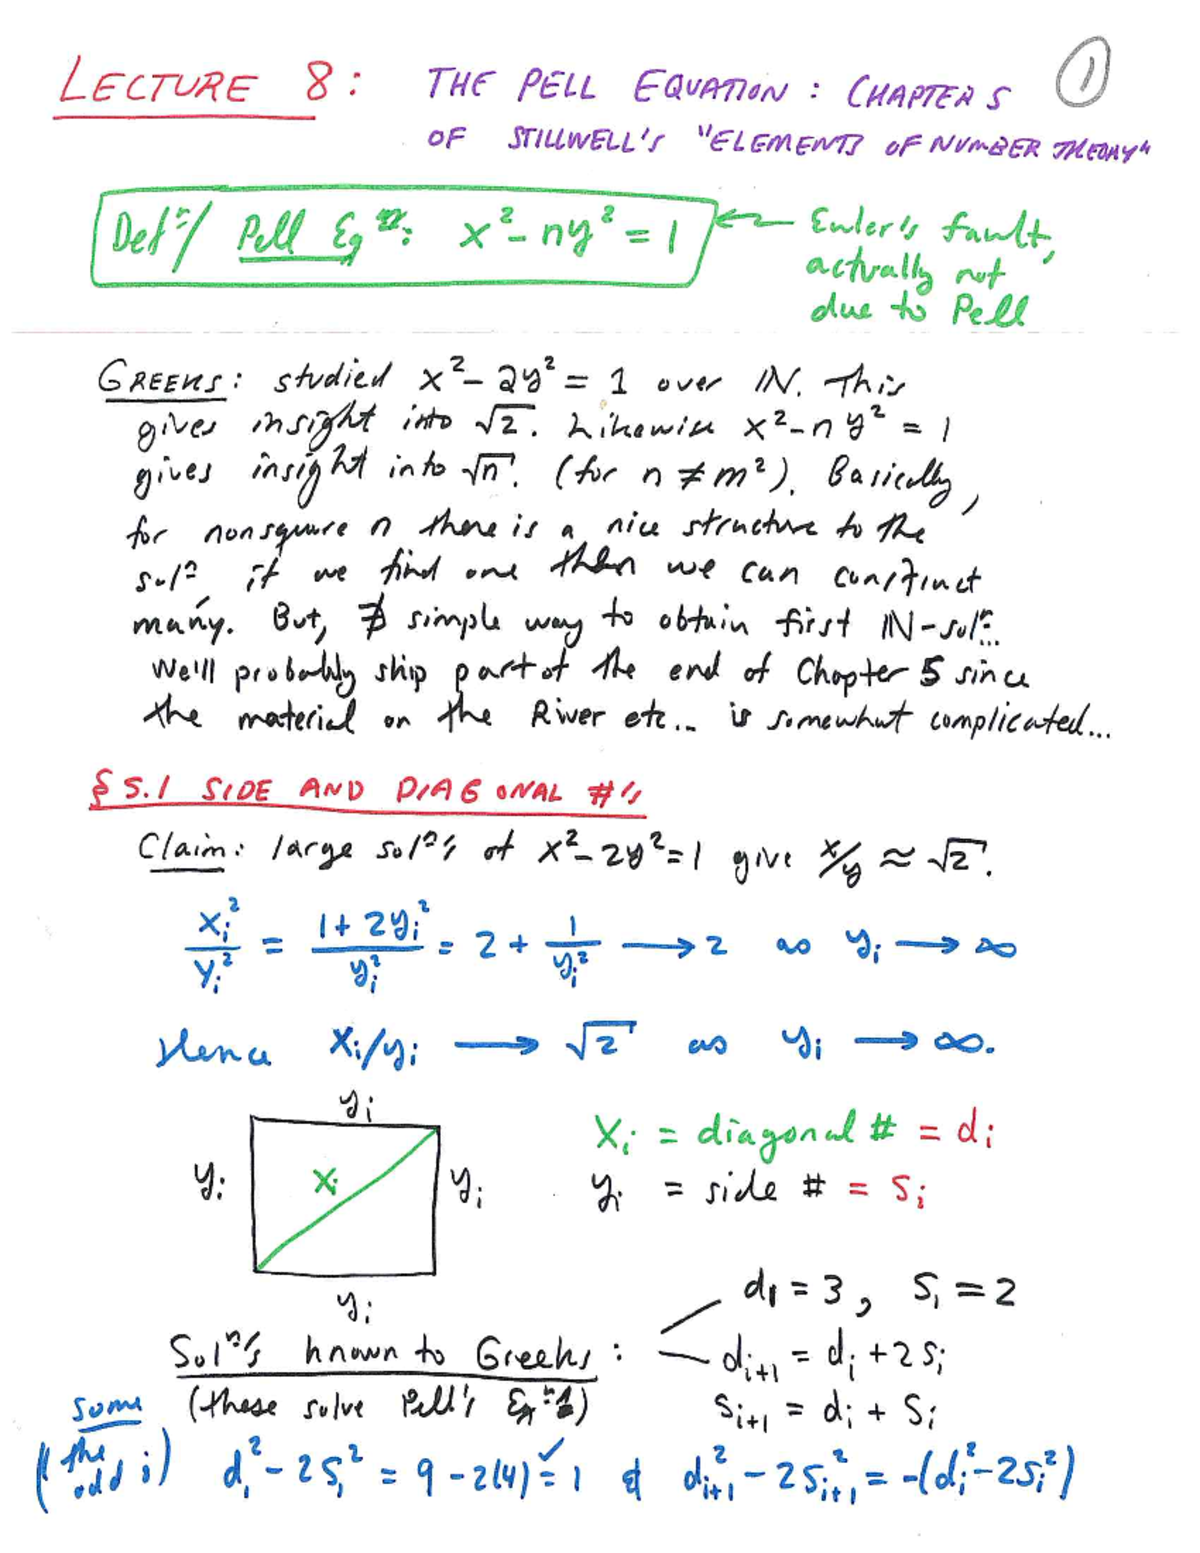 LECTURE 8: THE PELL EQUATION: CHAPTER 5 ①
OF STILLWELL'S "ELEMENTS OF NUMBER THEORY"
Defⁿ/ Pell Eqⁿ: x² - ny² = 1 ← Euler's fault,
actually not
due to Pell
GREEKS: studied x² - 2y² = 1 over ℕ. This
gives insight into √2. Likewise x² - ny² = 1
gives insight into √n. (for n ≠ m²). Basically,
for nonsquare n there is a nice structure to the
solⁿ, if we find one then we can construct
many. But, ∄ simple way to obtain first ℕ-solⁿ...
We'll probably skip part of the end of Chapter 5 since
the material on the River etc... is somewhat complicated...
§5.1 SIDE AND DIAGONAL #'s
Claim: large solⁿ's of x² - 2y² = 1 give x/y ≈ √2.
xᵢ²/yᵢ² = (1 + 2yᵢ²)/yᵢ² = 2 + 1/yᵢ² → 2 as yᵢ → ∞
Hence xᵢ/yᵢ → √2 as yᵢ → ∞.
yᵢ
yᵢ xᵢ yᵢ
yᵢ
xᵢ = diagonal # = dᵢ
yᵢ = side # = sᵢ
d₁ = 3, s₁ = 2
Solⁿ's known to Greeks: dᵢ₊₁ = dᵢ + 2sᵢ
(these solve Pell's Eqⁿ) sᵢ₊₁ = dᵢ + sᵢ
some
(the odd i) d₁² - 2s₁² = 9 - 2(4) =✓ 1 & dᵢ₊₁² - 2sᵢ₊₁² = -(dᵢ² - 2sᵢ²)